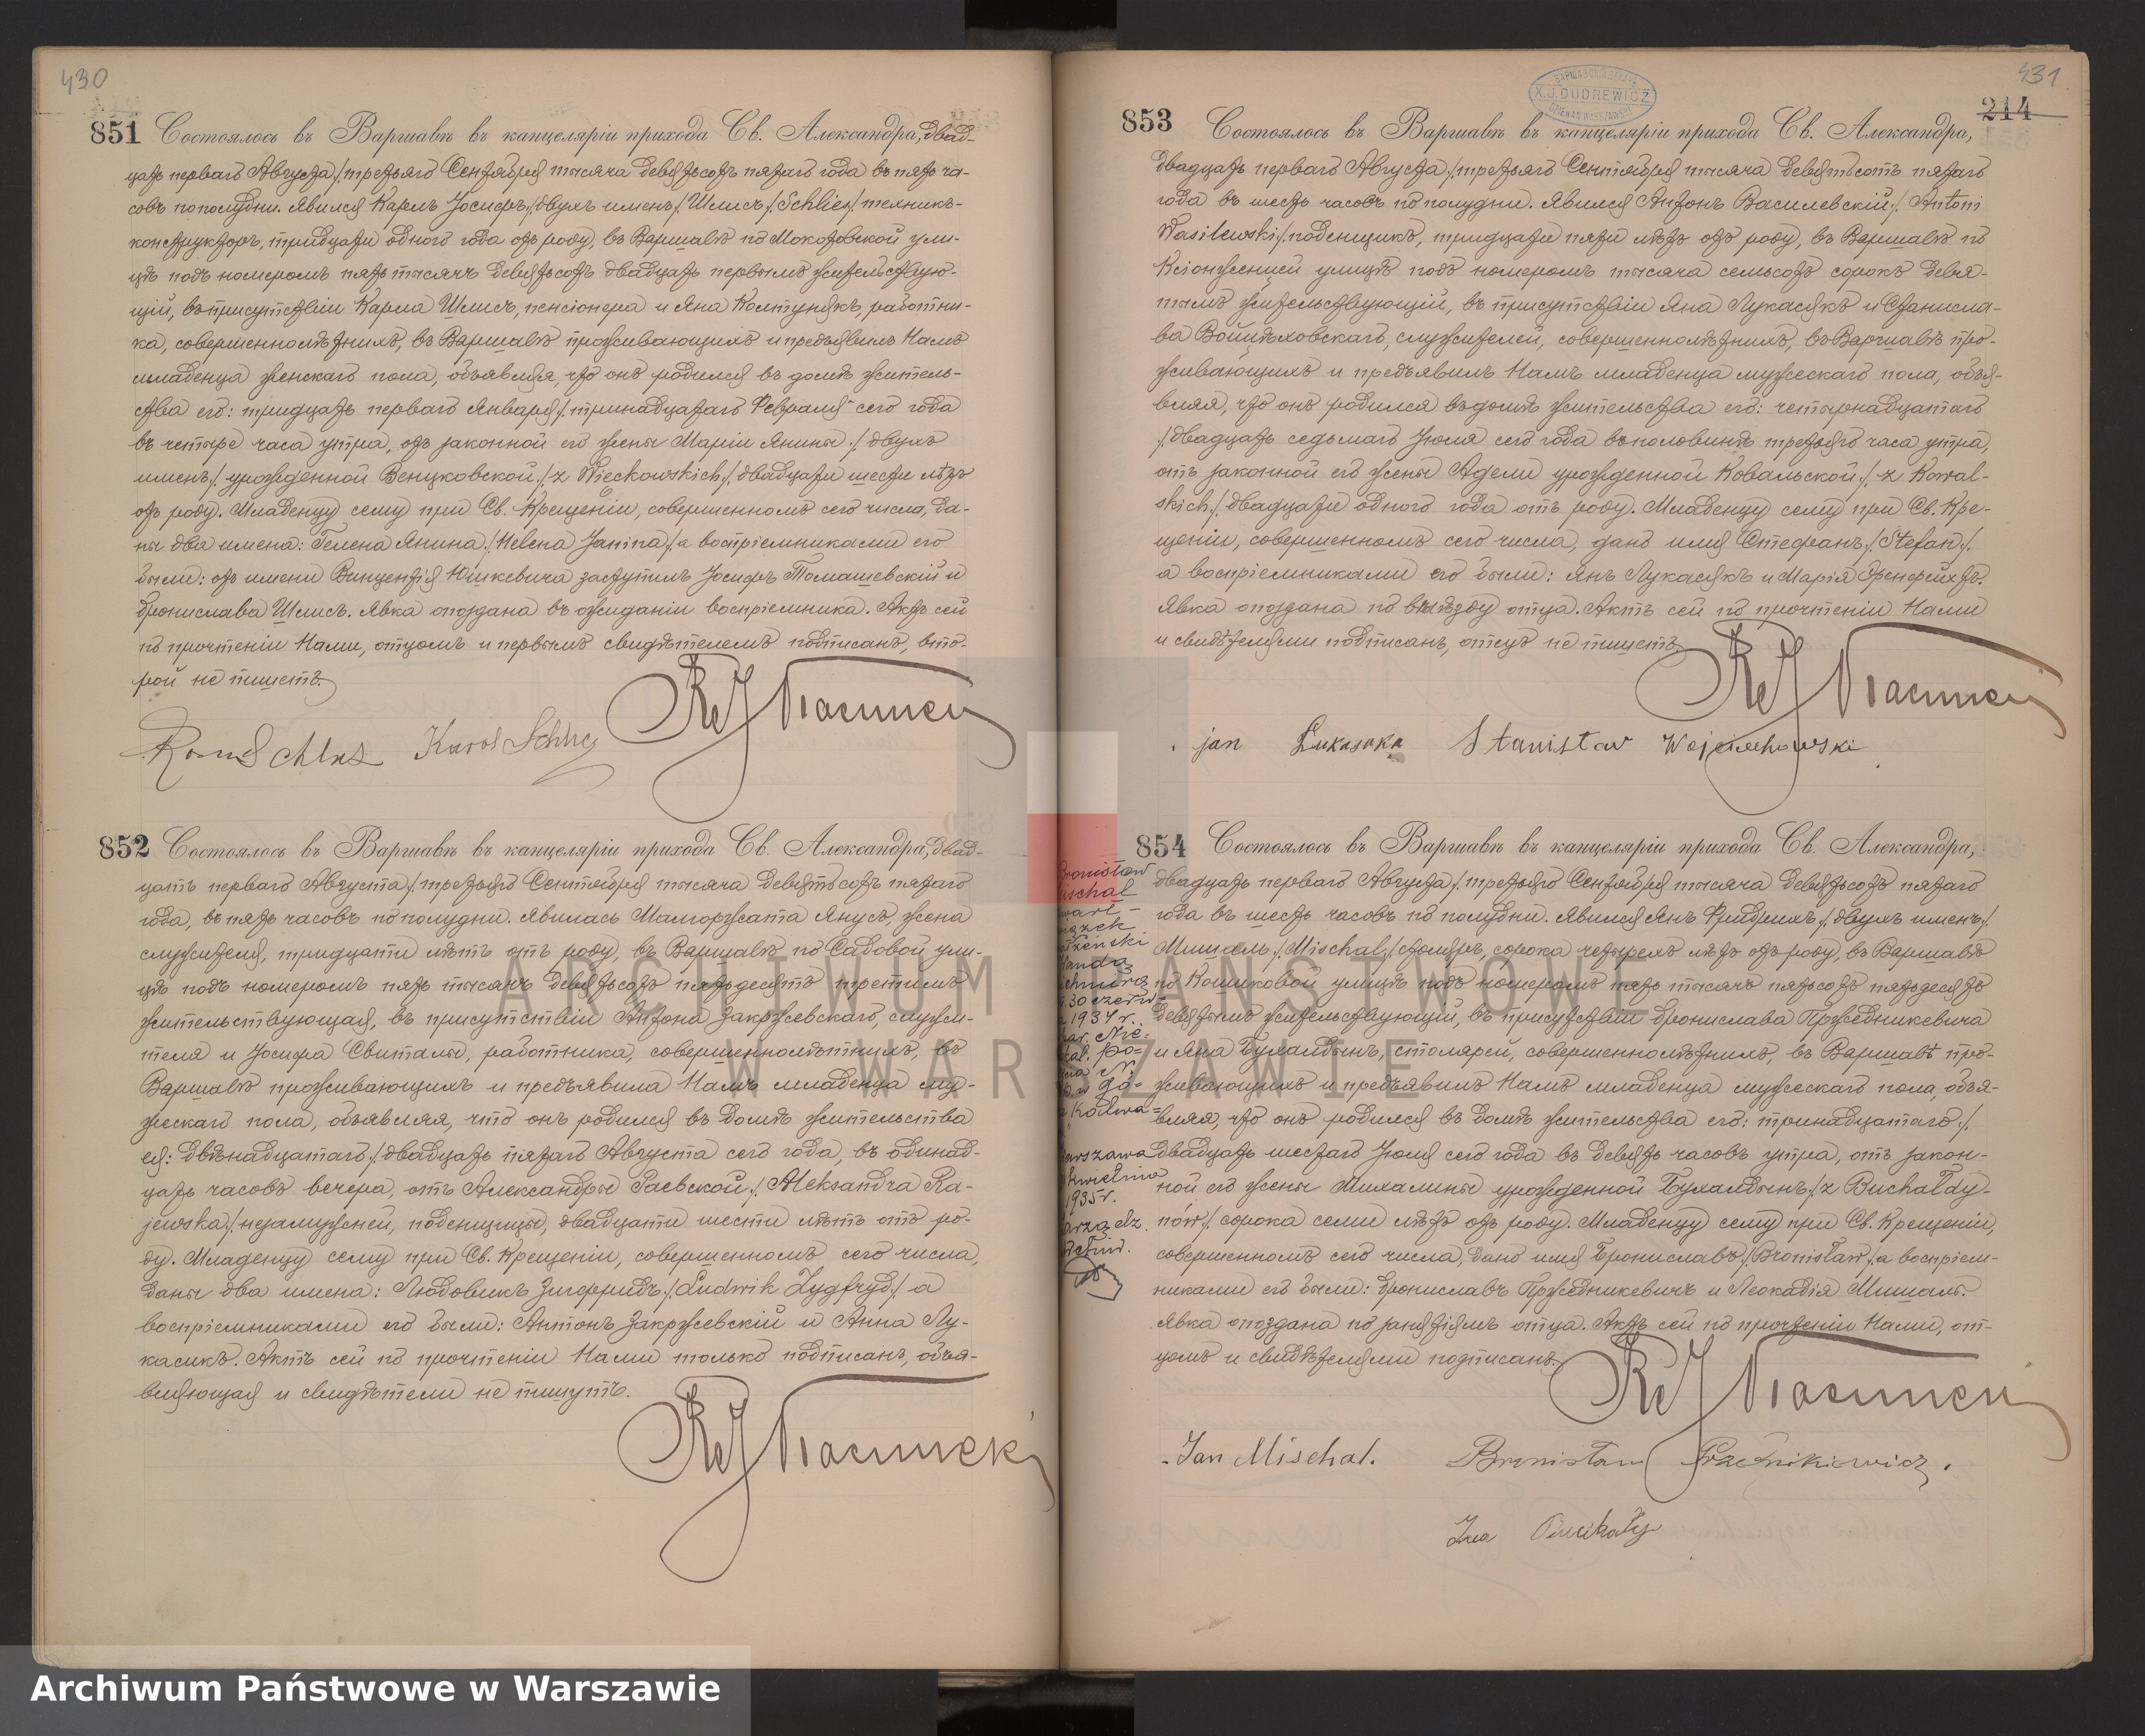 430
851 Состоялось въ Варшавѣ въ канцеляріи прихода Св. Александра, двад-
цать перваго Августа /:третьяго Сентября тысяча девятьсотъ пятаго года въ пять ча-
совъ пополудни. Явился Карлъ Іосифъ /:двухъ именъ:/ Шлисъ /:Schlies:/ техникъ-
конструкторъ, тридцати одного года отъ роду, въ Варшавѣ по Мокотовской ули-
цѣ подъ номеромъ пять тысячъ девятьсотъ двадцать первымъ жительствую-
щій, въ присутствіи Карла Шлисъ, пенсіонера и Яна Колтунякъ, работни-
ка, совершеннолѣтнихъ, въ Варшавѣ проживающихъ и предъявилъ Намъ
младенца женскаго пола, объявляя, что онъ родился въ домѣ житель-
ства его: тридцать перваго Января /:тринадцатаго Февраля сего года
въ четыре часа утра, отъ законной его жены Маріи Янины /:двухъ
именъ:/ урожденной Венцковской /:z Więckowskich:/ двадцати шести лѣтъ
отъ роду. Младенцу сему при Св. Крещеніи, совершенномъ сего числа, да-
ны два имена: Гелена Янина /:Helena Janina:/ а воспріемниками его
были: отъ имени Винцентія Юшкевича заступилъ Іосифъ Томашевскій и
Бронислава Шлисъ. Явка опоздана въ ожиданіи воспріемника. Актъ сей
по прочтеніи Нами, отцомъ и первымъ свидѣтелемъ подписанъ, вто-
рой не пишетъ.
Karol Schlies
852 Состоялось въ Варшавѣ въ канцеляріи прихода Св. Александра, двад-
цать перваго Августа /:третьяго Сентября тысяча девятьсотъ пятаго
года, въ пять часовъ пополудни. Явилась Малгоржата Янусъ, жена
служителя, тридцати лѣтъ отъ роду, въ Варшавѣ по Садовой ули-
цѣ подъ номеромъ пять тысячъ девятьсотъ пятьдесятъ третьимъ
жительствующая, въ присутствіи Антона Закржевскаго, служи-
теля и Іосифа Свиталы, работника, совершеннолѣтнихъ, въ
Варшавѣ проживающихъ и предъявила Намъ младенца му-
жескаго пола, объявляя, что онъ родился въ домѣ жительства
ея: двѣнадцатаго /:двадцать пятаго Августа сего года, въ одинад-
цать часовъ вечера, отъ Александры Раевской /:Aleksandra Ra-
jewska:/ незамужней, поденщицы, двадцати шести лѣтъ отъ ро-
ду. Младенцу сему при Св. Крещеніи, совершенномъ сего числа,
даны два имена: Людовикъ Зигфридъ /:Ludwik Zygfryd:/ а
воспріемниками его были: Антонъ Закржевскій и Анна Лу-
касикъ. Актъ сей по прочтеніи Нами только подписанъ, объя-
вляющая и свидѣтели не пишутъ.
431
X.J. DUDREWICZ
214
853 Состоялось въ Варшавѣ въ канцеляріи прихода Св. Александра,
двадцать перваго Августа /:третьяго Сентября тысяча девятьсотъ пятаго
года въ шесть часовъ по полудни. Явился Антонъ Василевскій /:Antoni
Wasilewski:/ поденщикъ, тридцати пяти лѣтъ отъ роду, въ Варшавѣ по
Ксіонженцей улицѣ подъ номеромъ тысяча семьсотъ сорокъ девя-
тымъ жительствующій, въ присутствіи Яна Лукасякъ и Станисла-
ва Войцѣховскаго, служителей, совершеннолѣтнихъ, въ Варшавѣ про-
живающихъ и предъявилъ Намъ младенца мужескаго пола, объя-
вляя, что онъ родился въ домѣ жительства его: четырнадцатаго
/:двадцать седьмаго Іюля сего года въ половинѣ третьяго часа утра,
отъ законной его жены Адели урожденной Ковальской /:z Kowal-
skich:/ двадцати одного года отъ роду. Младенцу сему при Св. Кре-
щеніи, совершенномъ сего числа, дано имя Стефанъ /:Stefan:/
а воспріемниками его были: Янъ Лукасякъ и Марія
Явка опоздана по выѣзду отца. Актъ сей по прочтеніи Нами
и свидѣтелями подписанъ, отецъ не пишетъ.
jan Lukasiak Stanisław Wojciechowski
854 Состоялось въ Варшавѣ въ канцеляріи прихода Св. Александра,
двадцать перваго Августа /:третьяго Сентября тысяча девятьсотъ пятаго
года въ шесть часовъ по полудни. Явился Янъ Фридрихъ /:двухъ именъ:/
Мишаль /:Mischal:/ столяръ, сорока четырехъ лѣтъ отъ роду, въ Варшавѣ
по Кошиковой улицѣ подъ номеромъ пять тысячъ пятьсотъ пятьдесятъ
девятымъ жительствующій, въ присутствіи Бронислава Пржедникевича
и Яна Бухалдынъ, столярей, совершеннолѣтнихъ, въ Варшавѣ про-
живающихъ и предъявилъ Намъ младенца мужескаго пола, объя-
вляя, что онъ родился въ домѣ жительства его: тринадцатаго /:
двадцать шестаго Іюля сего года въ девять часовъ утра, отъ закон-
ной его жены Михалины урожденной Бухалдынъ /:z Buchałdy-
nów:/ сорока семи лѣтъ отъ роду. Младенцу сему при Св. Крещеніи,
совершенномъ сего числа, дано имя Брониславъ /:Bronisław:/ а воспріем-
никами его были: Брониславъ Пржедникевичъ и Леокадія Мишаль.
Явка опоздана по занятіямъ отца. Актъ сей по прочтеніи Нами, от-
цомъ и свидѣтелями подписанъ.
Jan Mischal. Bronisław Przednikiewicz.
Bronisław
30 czerw
1934 r.
kwietnia
1935 r.
ARCHIWUM PAŃSTWOWE
W WARSZAWIE
Archiwum Państwowe w Warszawie